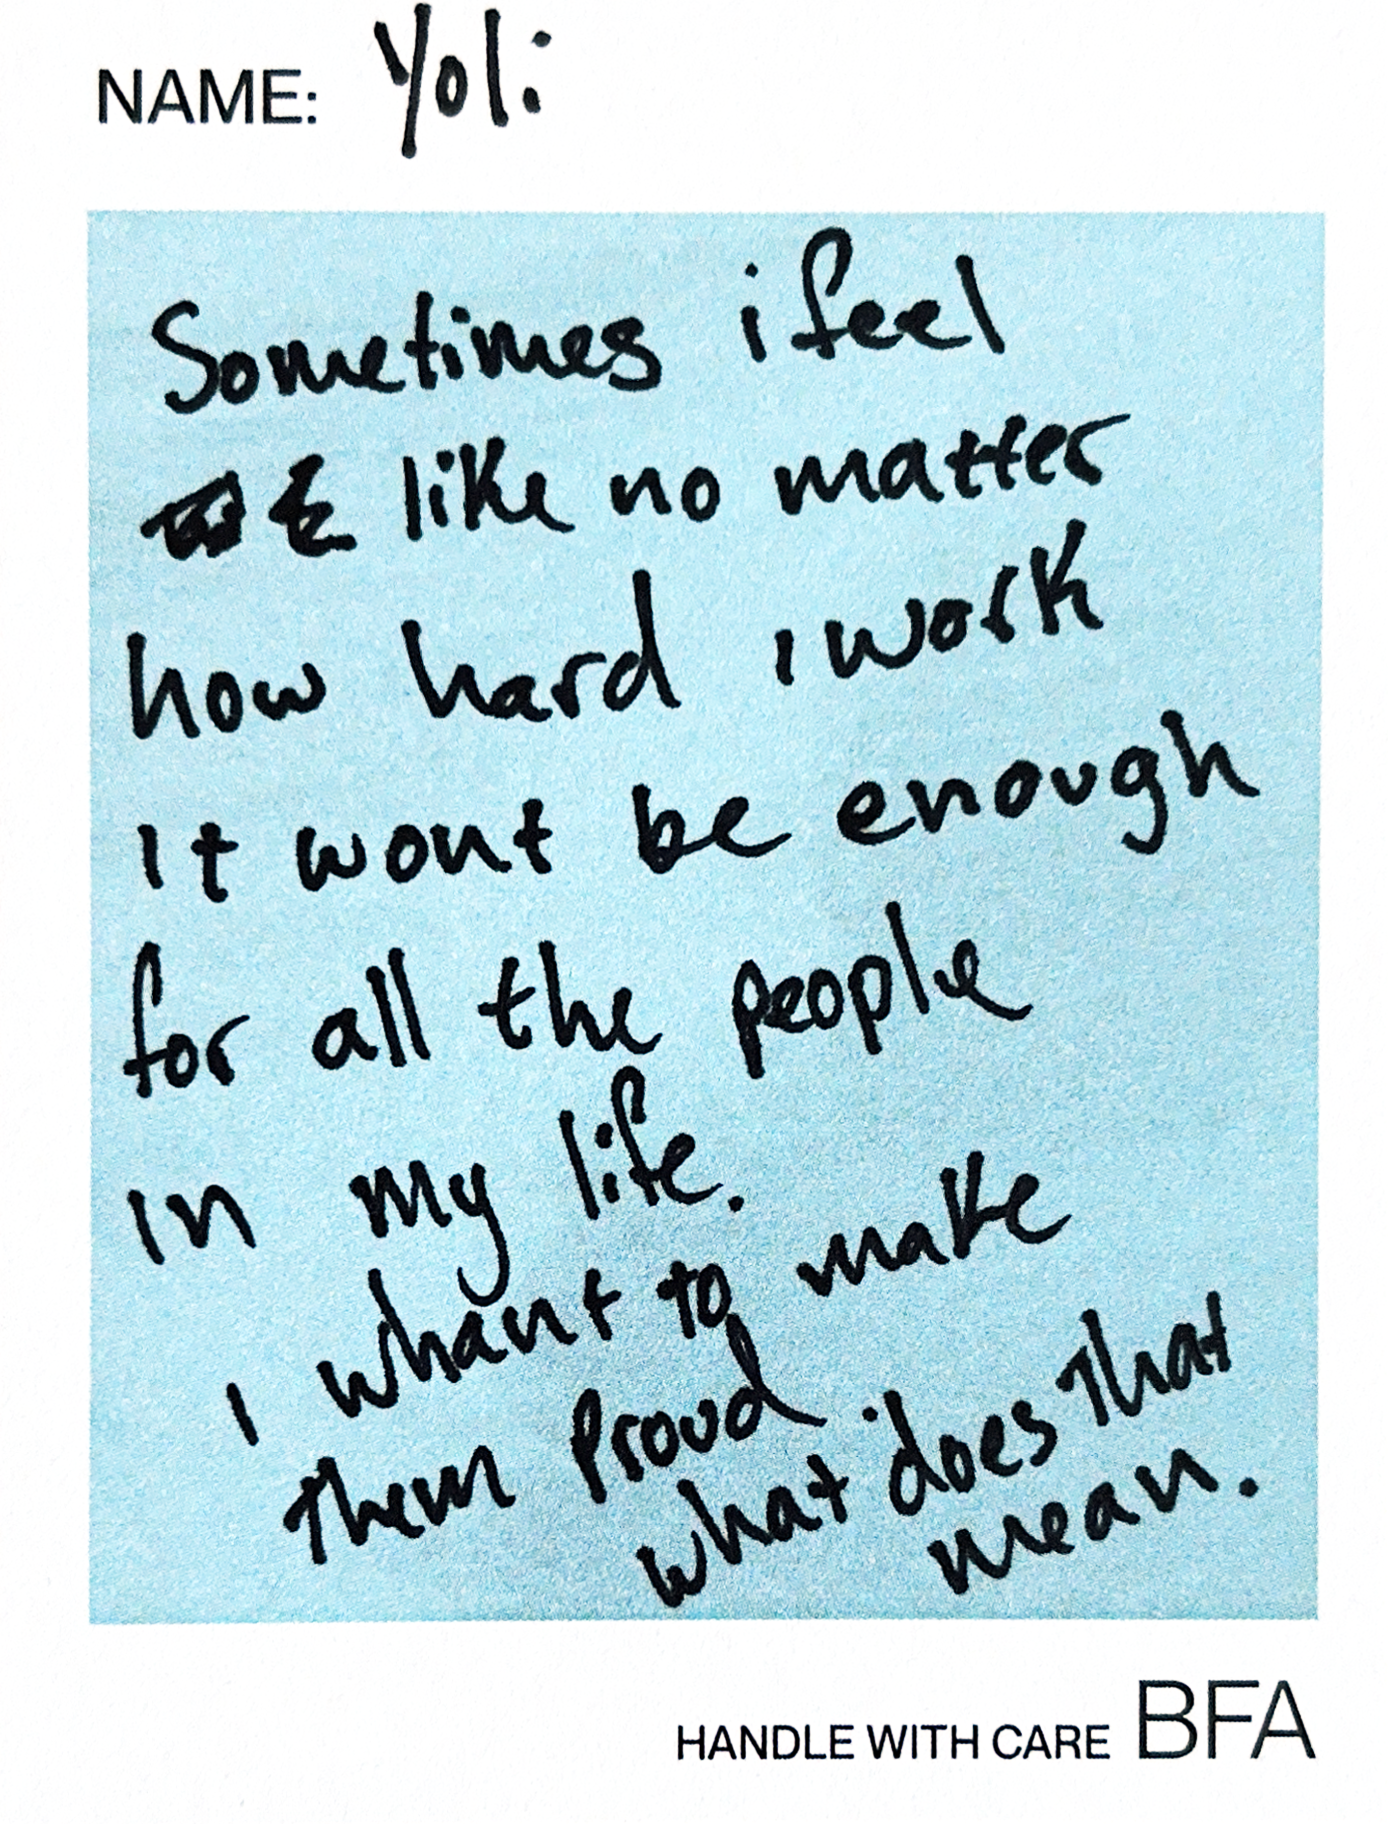 NAME: Yoli
Sometimes i feel
like no matter
how hard i work
It wont be enough
for all the people
In my life.
I whant to make
Them Proud.
what does That
mean.
HANDLE WITH CARE BFA